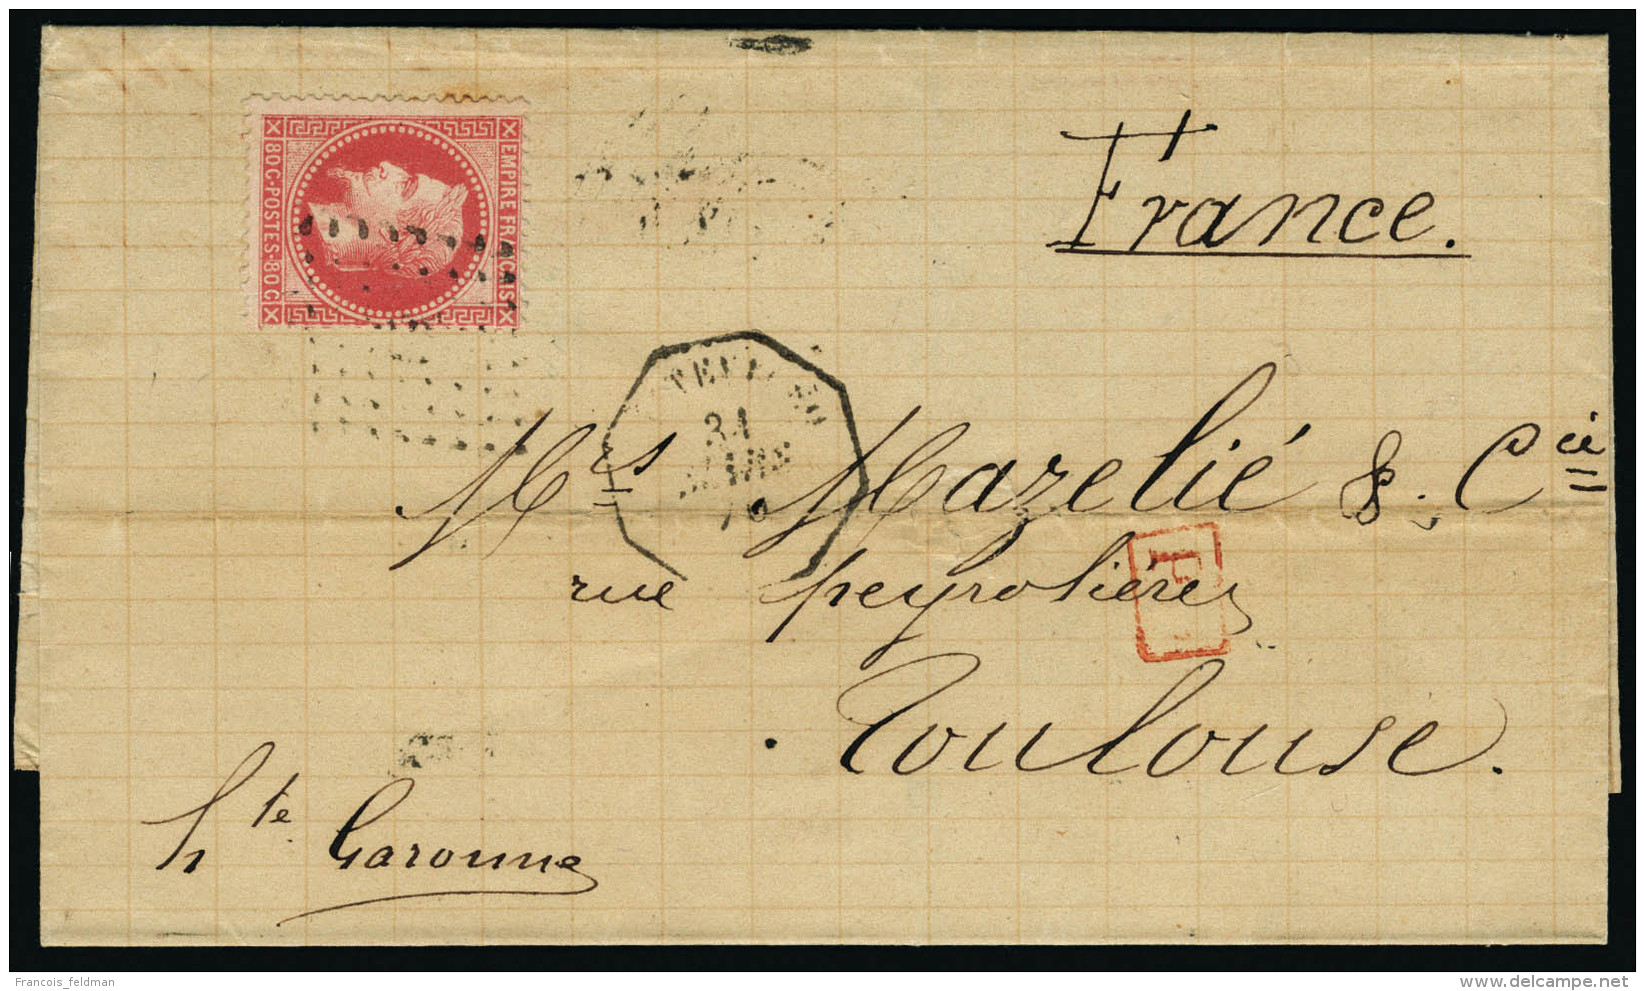 EMPIRE FRANÇAIS
80C·POSTES·80C
France.
31
76
Mrs Mazelié & Cie
rue peyrolières
Toulouse.
hte Garonne
Francois_feldman
www.delcampe.net